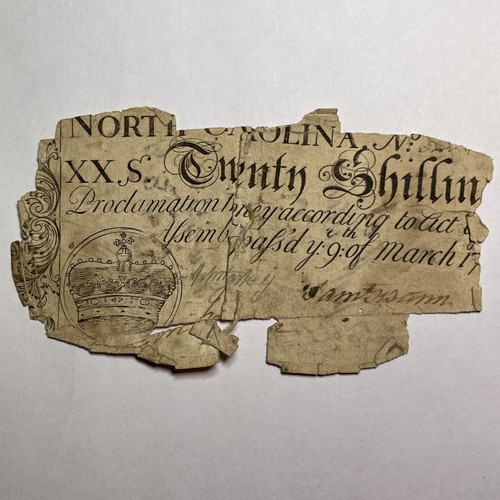 NORTH CAROLINA, No.
XX.S. Twenty Shillin
Proclamation ney according to Act
Assemb pass'd ye. 9th. of March 17
Sam Swann